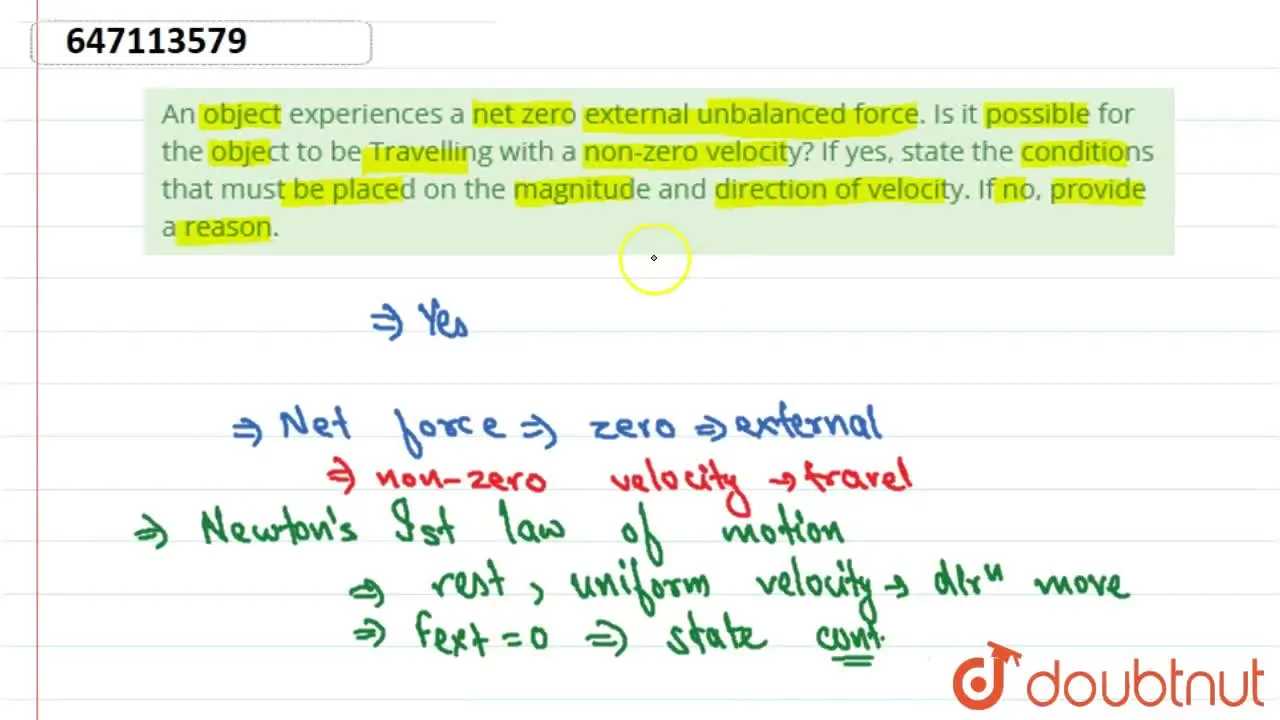 647113579
An object experiences a net zero external unbalanced force. Is it possible for
the object to be Travelling with a non-zero velocity? If yes, state the conditions
that must be placed on the magnitude and direction of velocity. If no, provide
a reason.
⇒ Yes
⇒ Net force ⇒ zero ⇒ external
⇒ non-zero velocity → travel
⇒ Newton's Ist law of motion
⇒ rest, uniform velocity → dirⁿ move
⇒ Fext = 0 ⇒ state cont.
doubtnut